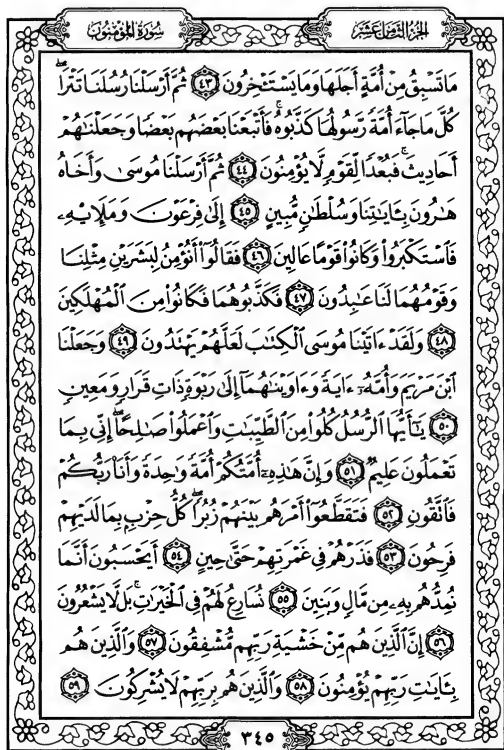 الجزء الثامن عشر
سورة المؤمنون
مَا تَسْبِقُ مِنْ أُمَّةٍ أَجَلَهَا وَمَا يَسْتَـْٔخِرُونَ ٤٣ ثُمَّ أَرْسَلْنَا رُسُلَنَا تَتْرَا ۖ
كُلَّ مَا جَآءَ أُمَّةً رَّسُولُهَا كَذَّبُوهُ ۚ فَأَتْبَعْنَا بَعْضَهُم بَعْضًا وَجَعَلْنَٰهُمْ
أَحَادِيثَ ۚ فَبُعْدًا لِّقَوْمٍ لَّا يُؤْمِنُونَ ٤٤ ثُمَّ أَرْسَلْنَا مُوسَىٰ وَأَخَاهُ
هَٰرُونَ بِـَٔايَٰتِنَا وَسُلْطَٰنٍ مُّبِينٍ ٤٥ إِلَىٰ فِرْعَوْنَ وَمَلَإِي۟هِۦ
فَٱسْتَكْبَرُوا۟ وَكَانُوا۟ قَوْمًا عَالِينَ ٤٦ فَقَالُوٓا۟ أَنُؤْمِنُ لِبَشَرَيْنِ مِثْلِنَا
وَقَوْمُهُمَا لَنَا عَٰبِدُونَ ٤٧ فَكَذَّبُوهُمَا فَكَانُوا۟ مِنَ ٱلْمُهْلَكِينَ
٤٨ وَلَقَدْ ءَاتَيْنَا مُوسَى ٱلْكِتَٰبَ لَعَلَّهُمْ يَهْتَدُونَ ٤٩ وَجَعَلْنَا
ٱبْنَ مَرْيَمَ وَأُمَّهُۥٓ ءَايَةً وَءَاوَيْنَٰهُمَآ إِلَىٰ رَبْوَةٍ ذَاتِ قَرَارٍ وَمَعِينٍ
٥٠ يَٰٓأَيُّهَا ٱلرُّسُلُ كُلُوا۟ مِنَ ٱلطَّيِّبَٰتِ وَٱعْمَلُوا۟ صَٰلِحًا ۖ إِنِّى بِمَا
تَعْمَلُونَ عَلِيمٌ ٥١ وَإِنَّ هَٰذِهِۦٓ أُمَّتُكُمْ أُمَّةً وَٰحِدَةً وَأَنَا۠ رَبُّكُمْ
فَٱتَّقُونِ ٥٢ فَتَقَطَّعُوٓا۟ أَمْرَهُم بَيْنَهُمْ زُبُرًا ۖ كُلُّ حِزْبٍۭ بِمَا لَدَيْهِمْ
فَرِحُونَ ٥٣ فَذَرْهُمْ فِى غَمْرَتِهِمْ حَتَّىٰ حِينٍ ٥٤ أَيَحْسَبُونَ أَنَّمَا
نُمِدُّهُم بِهِۦ مِن مَّالٍ وَبَنِينَ ٥٥ نُسَارِعُ لَهُمْ فِى ٱلْخَيْرَٰتِ ۚ بَل لَّا يَشْعُرُونَ
٥٦ إِنَّ ٱلَّذِينَ هُم مِّنْ خَشْيَةِ رَبِّهِم مُّشْفِقُونَ ٥٧ وَٱلَّذِينَ هُم
بِـَٔايَٰتِ رَبِّهِمْ يُؤْمِنُونَ ٥٨ وَٱلَّذِينَ هُم بِرَبِّهِمْ لَا يُشْرِكُونَ ٥٩
٣٤٥